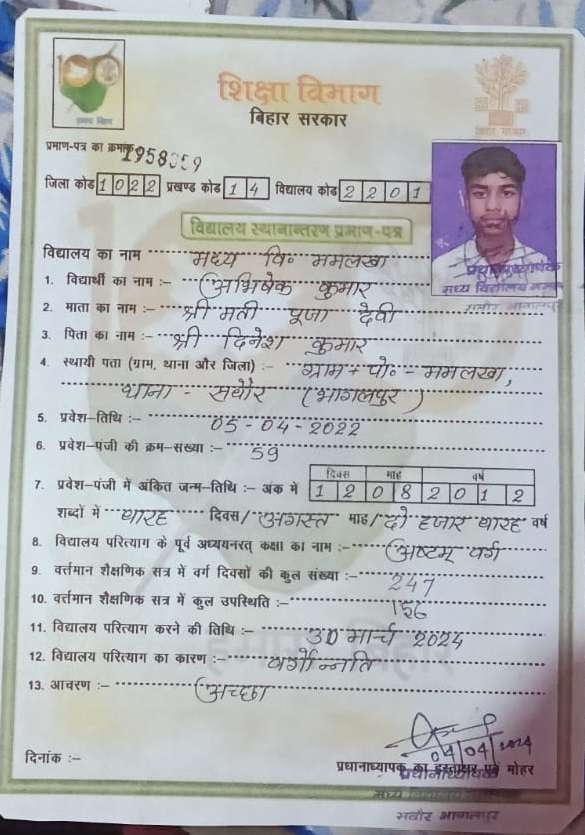 शिक्षा विभाग
बिहार सरकार
प्रमाण-पत्र का क्रमांक 1958359
जिला कोड 1022 प्रखण्ड कोड 14 विद्यालय कोड 2201
विद्यालय स्थानान्तरण प्रमाण-पत्र
विद्यालय का नाम मध्य वि० ममलखा
1. विद्यार्थी का नाम :- अभिषेक कुमार
2. माता का नाम :- श्री मती पूजा देवी
3. पिता का नाम :- श्री दिनेश कुमार
4. स्थायी पता (ग्राम, थाना और जिला) :- ग्राम + पो० - ममलखा,
थाना - सबौर (भागलपुर)
5. प्रवेश-तिथि :- 05-04-2022
6. प्रवेश-पंजी की क्रम-संख्या :- 59
दिवस माह वर्ष
7. प्रवेश-पंजी में अंकित जन्म-तिथि :- अंक में 12 08 2012
शब्दों में बारह दिवस/ अगस्त माह/ दो हजार बारह वर्ष
8. विद्यालय परित्याग के पूर्व अध्ययनरत् कक्षा का नाम :- अष्टम् वर्ग
9. वर्त्तमान शैक्षणिक सत्र में वर्ग दिवसों की कुल संख्या :- 247
10. वर्त्तमान शैक्षणिक सत्र में कुल उपस्थिति :- 156
11. विद्यालय परित्याग करने की तिथि :- 30 मार्च 2024
12. विद्यालय परित्याग का कारण :- वर्गोन्नति
13. आचरण :- अच्छा
04/04/2024
दिनांक :-
प्रधानाध्यापक का हस्ताक्षर एवं मोहर
प्रधानाध्यापक
मध्य विद्यालय
सबौर भागलपुर